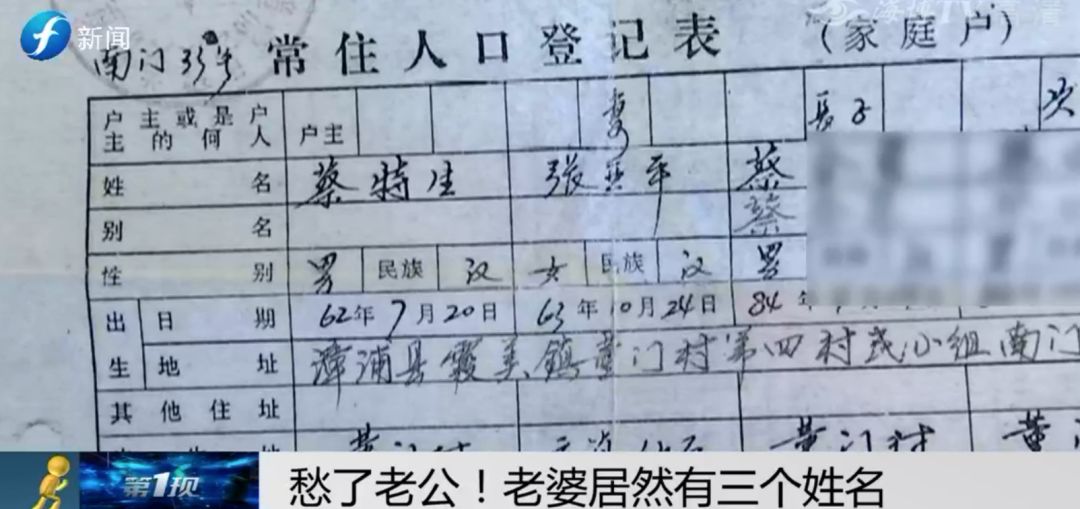 新闻
海博TV 高清
南门35号 常住人口登记表 (家庭户)
户主或是户主的何人 户主 妻 长子 次
姓名 蔡特生 张 平 蔡
别名 蔡
性别 男 民族 汉 女 民族 汉 男
出生 日期 62年7月20日 63年10月24日 84年
地址 漳浦县霞美镇董门村第四村民小组南门
其他住址
黄门村 黄门村 黄
第1现 愁了老公!老婆居然有三个姓名